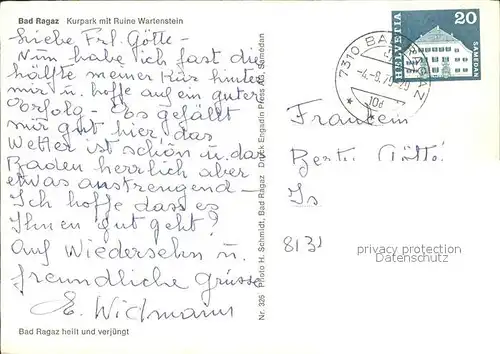 Bad Ragaz Kurpark mit Ruine Wartenstein
Liebe Frl. Götte -
Nun habe ich fast die
hälfte meiner Kur hinter
mir u. hoffe auf ein guter
Erfolg - Es gefällt
mir gut hier, das
Wetter ist schön u. das
Baden herrlich aber
etwas anstrengend -
Ich hoffe dass es
Ihnen gut geht?
Auf Wiedersehn u.
freundliche Grüsse
E. Widmann
Bad Ragaz heilt und verjüngt
Nr. 325 Photo H. Schmidt, Bad Ragaz Druck Engadin Press AG, Samedan
7310 BAD RAGAZ
HELVETIA
20
SAMEDAN
Fräulein
Götte
8131
privacy protection
Datenschutz